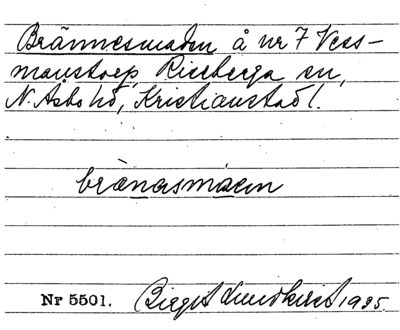 Brännesmaden å nr 7 Vess-
manstorp, Riseberga sn,
N. Åsbo hd, Kristianstad l.
bränəsmaən
Nr 5501. Birgit Lundkvist 1935.